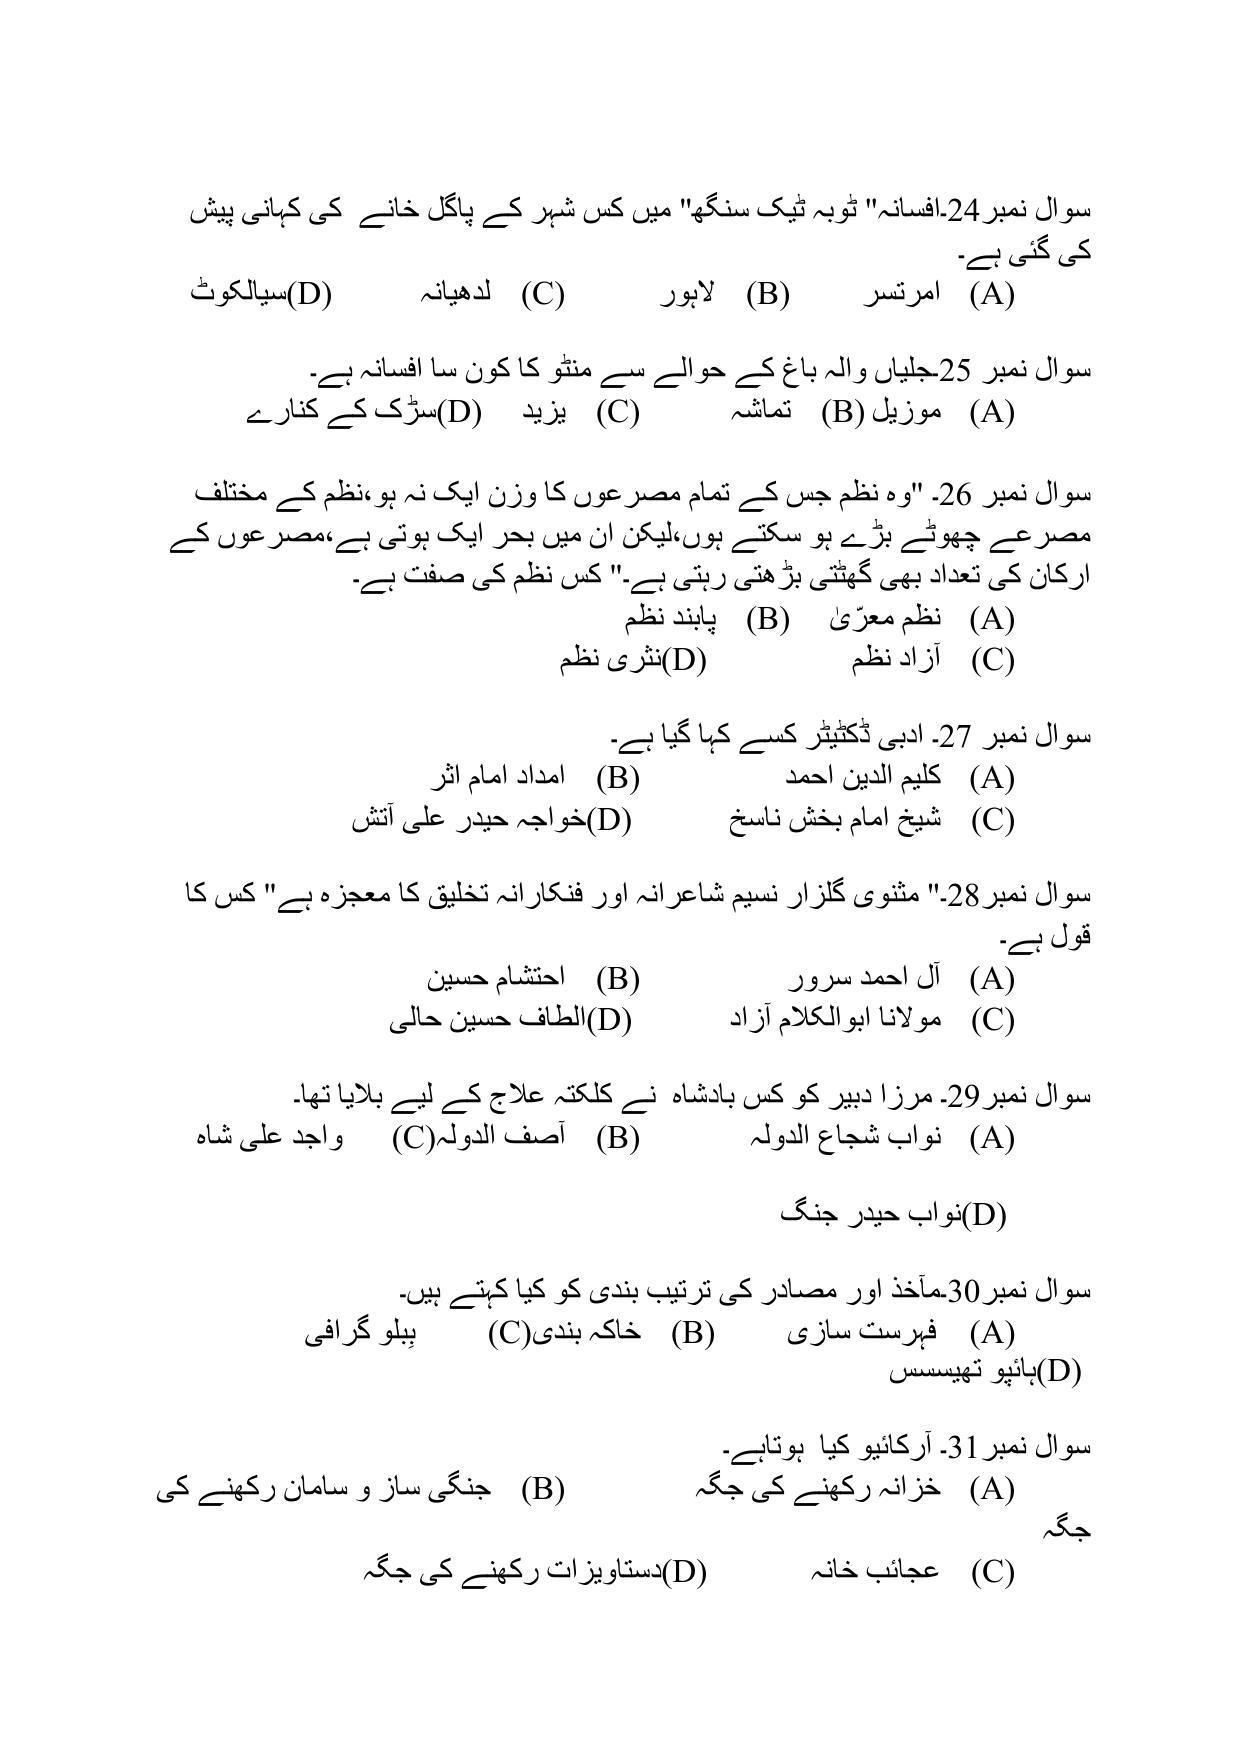 سوال نمبر24۔افسانہ" ٹوبہ ٹیک سنگھ" میں کس شہر کے پاگل خانے کی کہانی پیش
کی گئی ہے۔
(A) امرتسر (B) لاہور (C) لدھیانہ (D)سیالکوٹ
سوال نمبر 25۔جلیاں والہ باغ کے حوالے سے منٹو کا کون سا افسانہ ہے۔
(A) موزیل (B) تماشہ (C) یزید (D)سڑک کے کنارے
سوال نمبر 26۔ "وہ نظم جس کے تمام مصرعوں کا وزن ایک نہ ہو،نظم کے مختلف
مصرعے چھوٹے بڑے ہو سکتے ہوں،لیکن ان میں بحر ایک ہوتی ہے،مصرعوں کے
ارکان کی تعداد بھی گھٹتی بڑھتی رہتی ہے۔" کس نظم کی صفت ہے۔
(A) نظم معرّیٰ (B) پابند نظم
(C) آزاد نظم (D)نثری نظم
سوال نمبر 27۔ ادبی ڈکٹیٹر کسے کہا گیا ہے۔
(A) کلیم الدین احمد (B) امداد امام اثر
(C) شیخ امام بخش ناسخ (D)خواجہ حیدر علی آتش
سوال نمبر28۔" مثنوی گلزار نسیم شاعرانہ اور فنکارانہ تخلیق کا معجزہ ہے" کس کا
قول ہے۔
(A) آل احمد سرور (B) احتشام حسین
(C) مولانا ابوالکلام آزاد (D)الطاف حسین حالی
سوال نمبر29۔ مرزا دبیر کو کس بادشاہ نے کلکتہ علاج کے لیے بلایا تھا۔
(A) نواب شجاع الدولہ (B) آصف الدولہ(C) واجد علی شاہ
(D)نواب حیدر جنگ
سوال نمبر30۔مآخذ اور مصادر کی ترتیب بندی کو کیا کہتے ہیں۔
(A) فہرست سازی (B) خاکہ بندی(C) بِبلو گرافی
(D)ہائپو تھیسسس
سوال نمبر31۔ آرکائیو کیا ہوتاہے۔
(A) خزانہ رکھنے کی جگہ (B) جنگی ساز و سامان رکھنے کی
جگہ
(C) عجائب خانہ (D)دستاویزات رکھنے کی جگہ